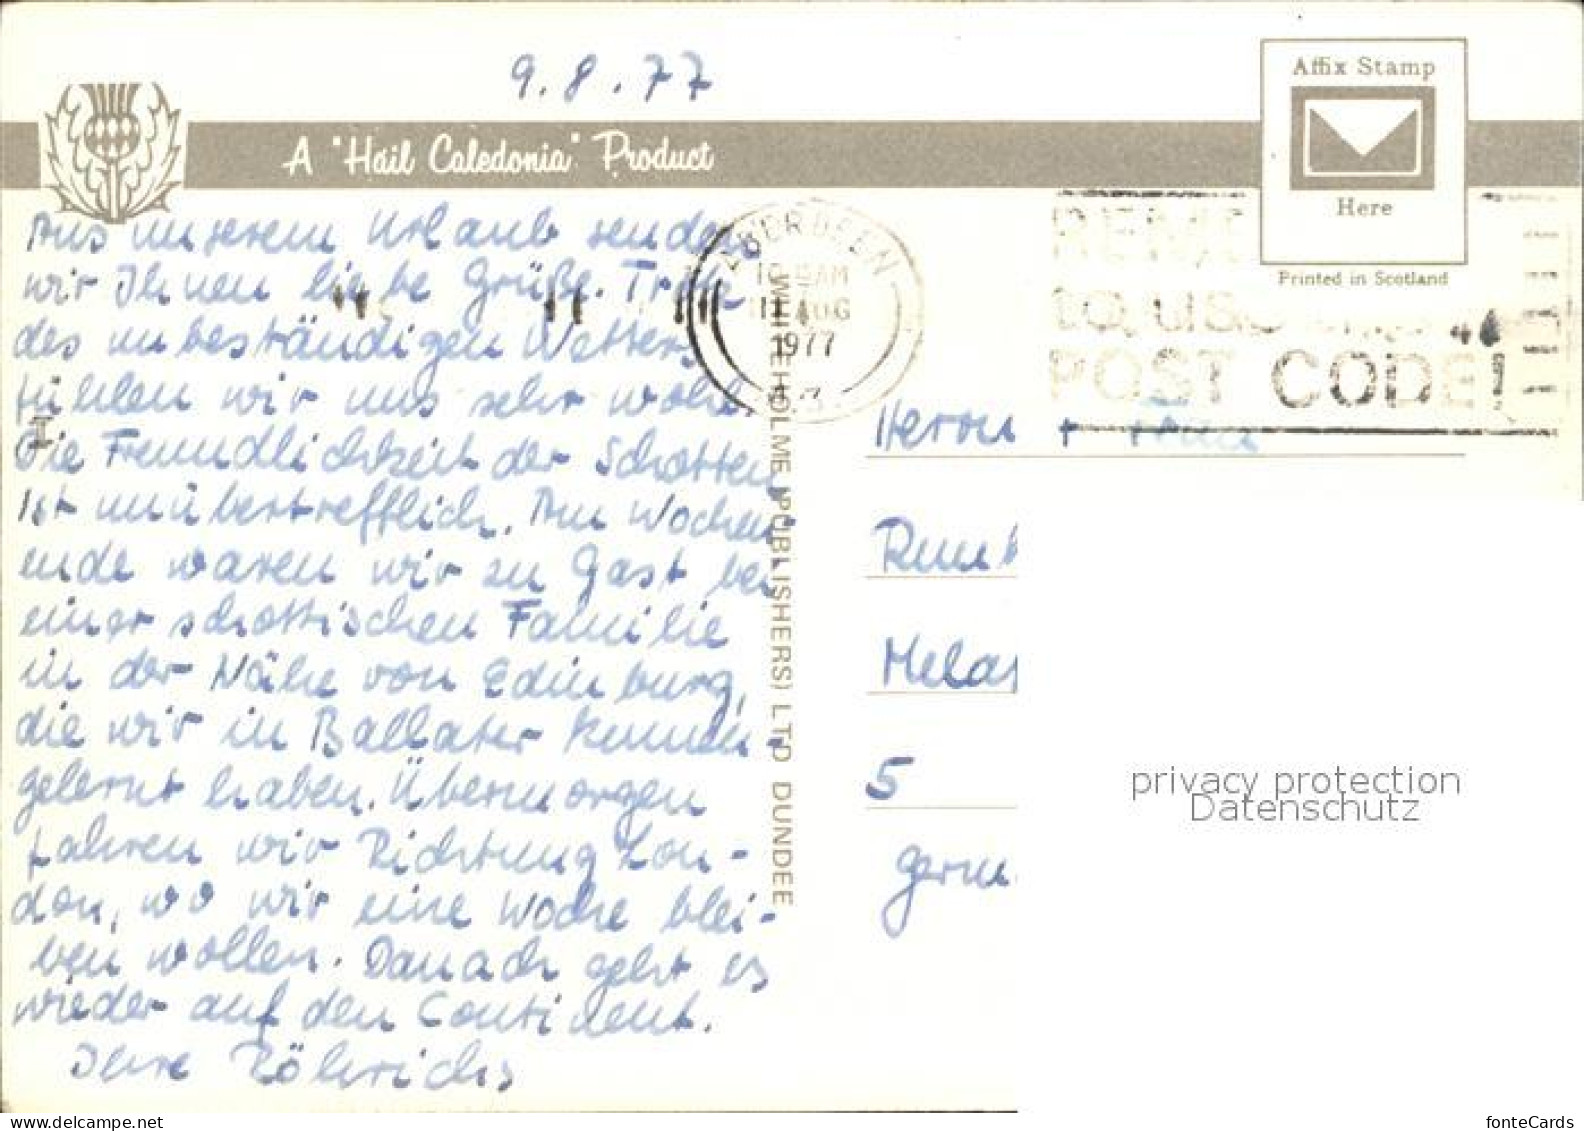 9.8.77
Affix Stamp
A "Hail Caledonia" Product
Here
Printed in Scotland
Aus unserem Urlaub senden
wir Ihnen liebe Grüße. Trotz
des unbeständigen Wetters
fühlen wir uns sehr wohl.
Die Freundlichkeit der Schotten
ist unübertrefflich. Am Wochen-
ende waren wir zu Gast bei
einer schottischen Familie
in der Nähe von Edinburg,
die wir in Ballater kennen-
gelernt haben. Übermorgen
fahren wir Richtung Lon-
don, wo wir eine Woche blei-
ben wollen. Danach geht es
wieder auf den Continent.
Ihre Röhrichs
ABERDEEN
AM
11 AUG
1977
to use
POST CODE
WHITEHOLME (PUBLISHERS) LTD DUNDEE
Herrn + Frau
5
privacy protection
Datenschutz
fonteCards